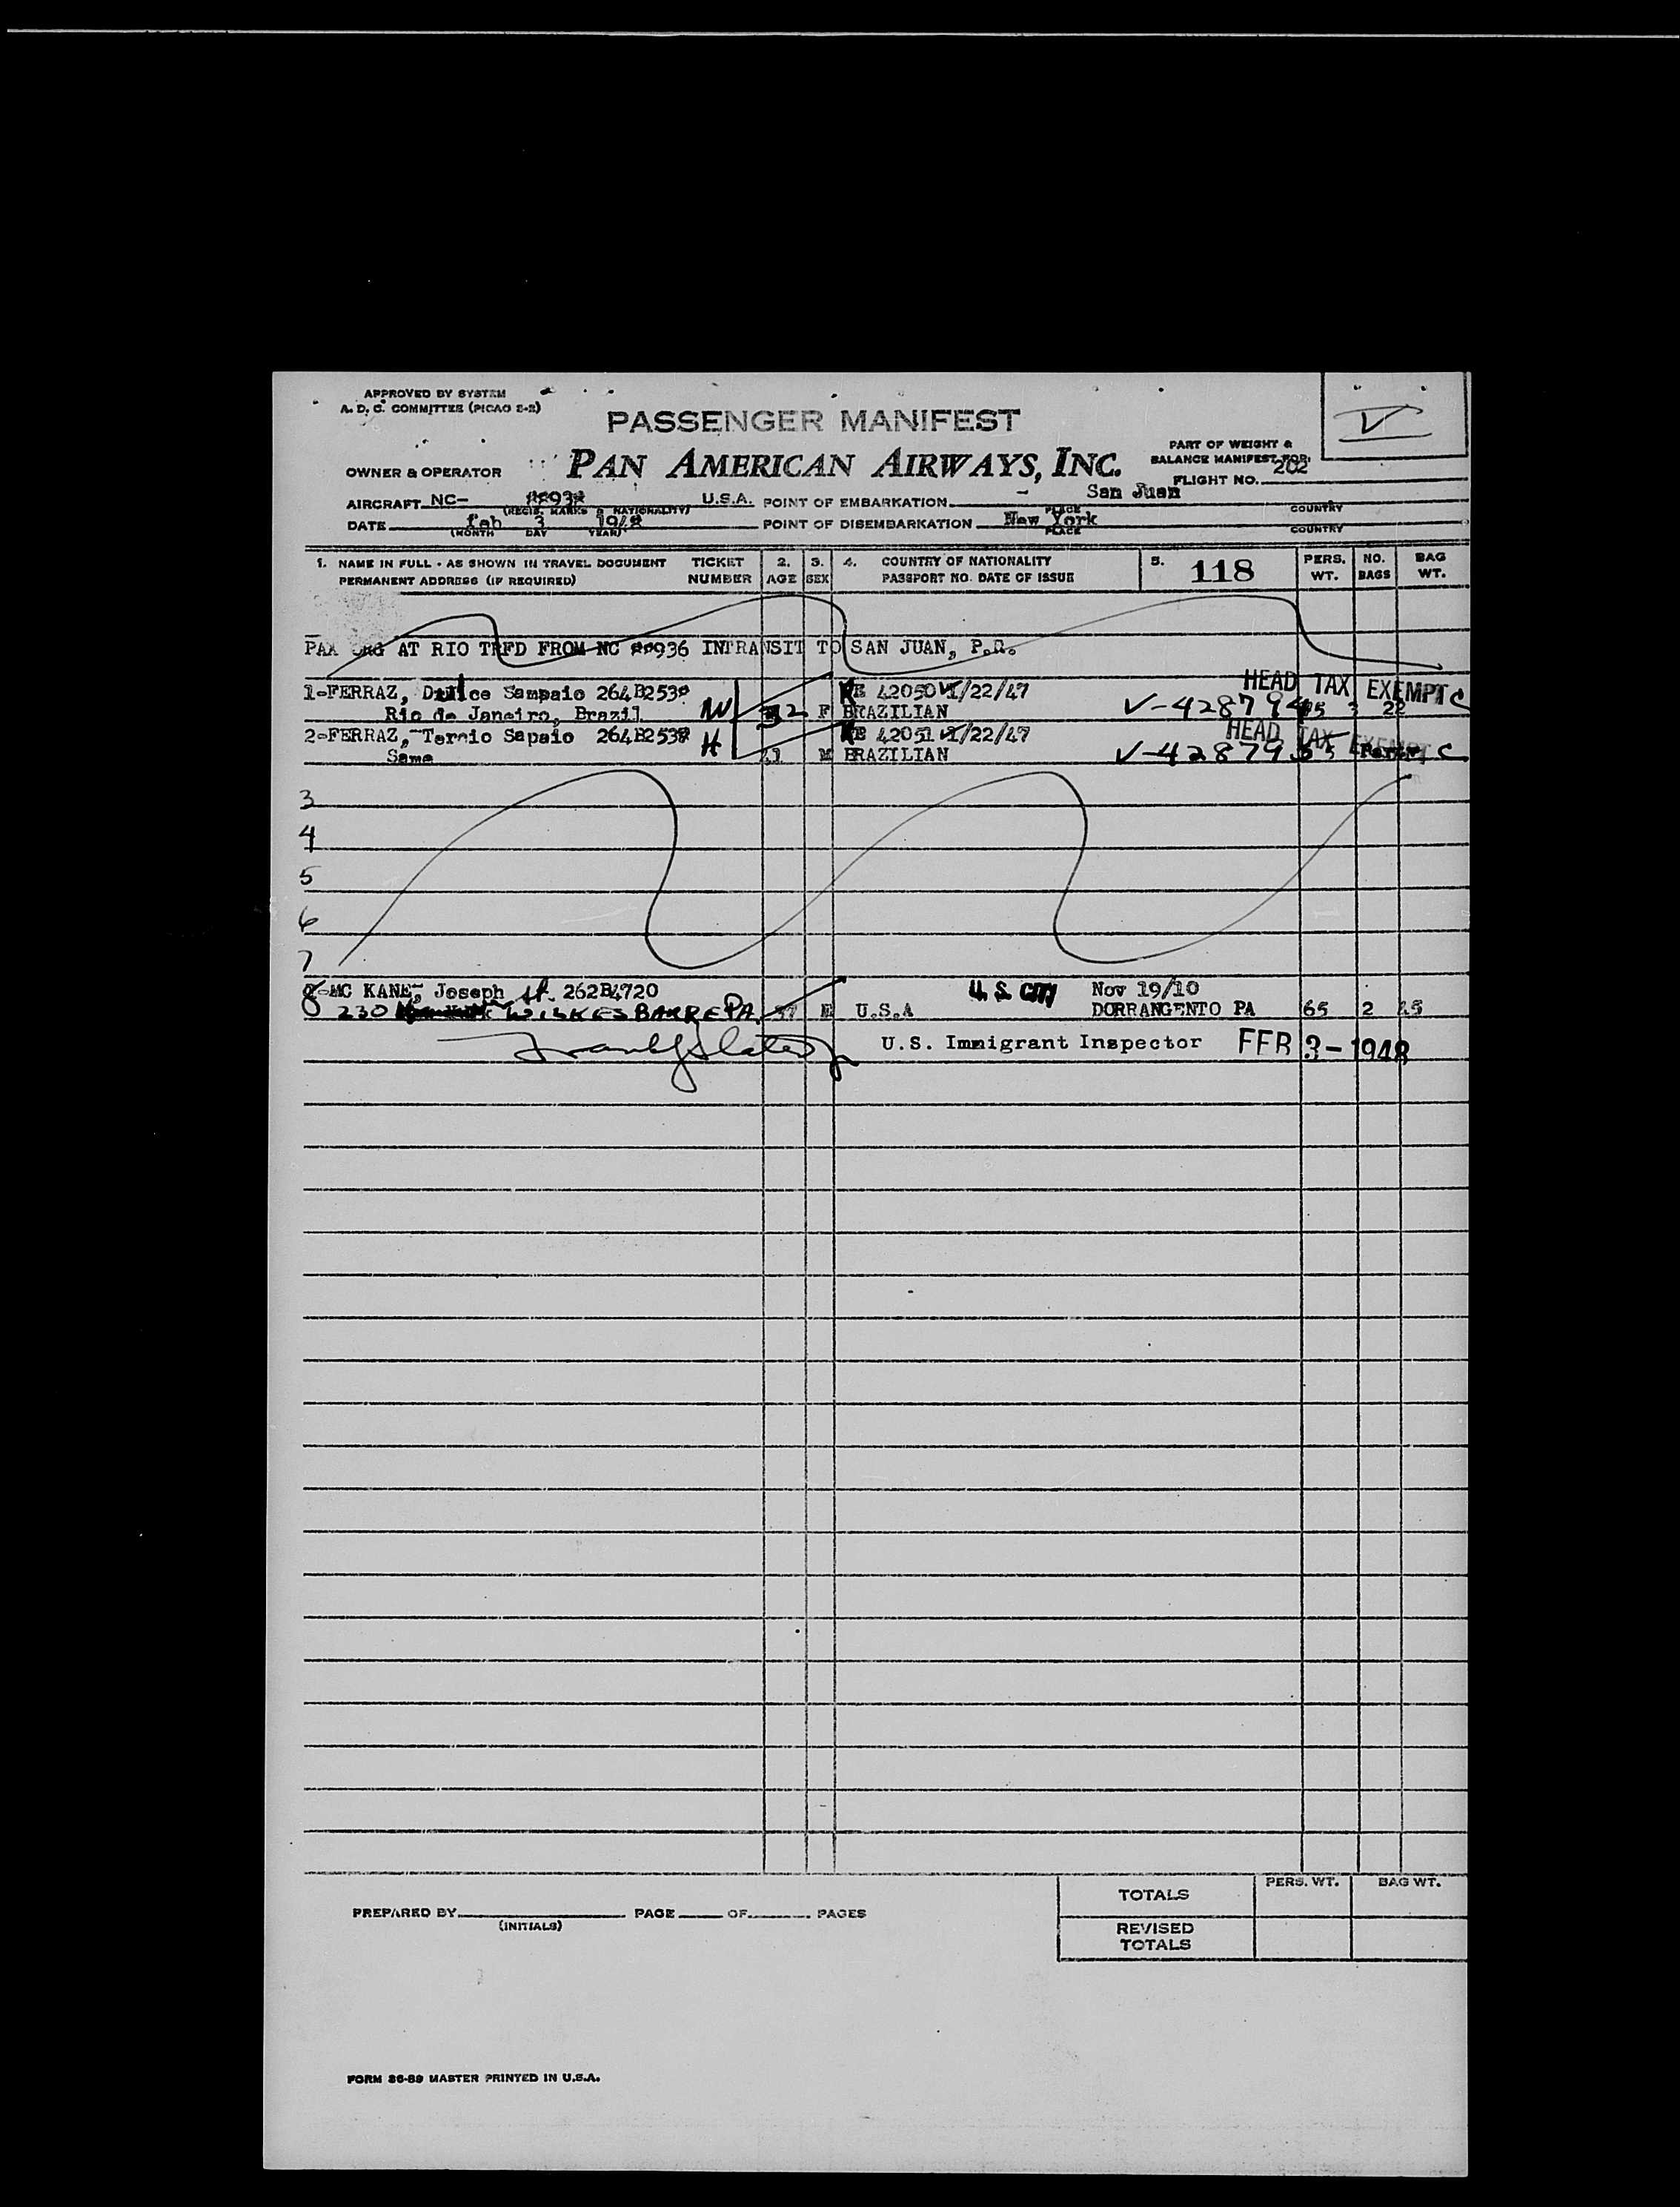 APPROVED BY SYSTEM
A. D. C. COMMITTEE (PICAO S-2)
PASSENGER MANIFEST
V
OWNER & OPERATOR
PAN AMERICAN AIRWAYS, INC.
PART OF WEIGHT &
BALANCE MANIFEST FOR
FLIGHT NO. 202
AIRCRAFT NC- U.S.A. POINT OF EMBARKATION - San Juan
(REGIS. MARKS & NATIONALITY) PLACE COUNTRY
DATE Feb 3 1948 POINT OF DISEMBARKATION New York
(MONTH DAY YEAR) PLACE COUNTRY
1. NAME IN FULL - AS SHOWN IN TRAVEL DOCUMENT TICKET 2. 3. 4. COUNTRY OF NATIONALITY 5. 118 PERS. NO. BAG
PERMANENT ADDRESS (IF REQUIRED) NUMBER AGE SEX PASSPORT NO. DATE OF ISSUE WT. BAGS WT.
PAX ORG AT RIO TRFD FROM NC INTRANSIT TO SAN JUAN, P.R.
1-FERRAZ, Sampaio W 42050 /22/47 HEAD TAX EXEMPT C
Rio de Janeiro, Brazil 32 F BRAZILIAN 22
2-FERRAZ, Sapaio H 42051 /22/47 HEAD TAX EXEMPT
Same M BRAZILIAN C
3
4
5
6
7
8-MC KANE, Joseph 262B4720 Nov 19/10
230 WILKES BARRE PA. U.S.A DORRANGENTO PA 65 2
U.S. Immigrant Inspector FEB 3-1948
TOTALS PERS. WT. BAG WT.
PREPARED BY PAGE OF PAGES
(INITIALS)
REVISED
TOTALS
FORM 36-89 MASTER PRINTED IN U.S.A.